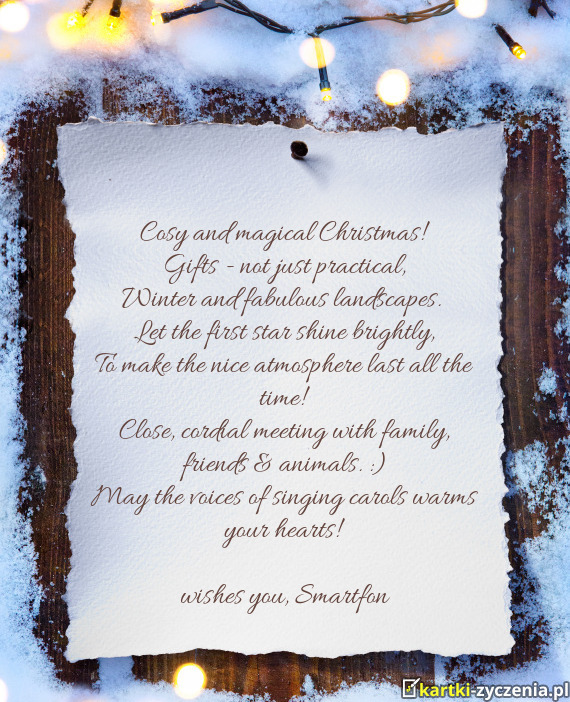 Cosy and magical Christmas!
Gifts - not just practical,
Winter and fabulous landscapes.
Let the first star shine brightly,
To make the nice atmosphere last all the
time!
Close, cordial meeting with family,
friends & animals. :)
May the voices of singing carols warms
your hearts!
wishes you, Smartfon
kartki-zyczenia.pl